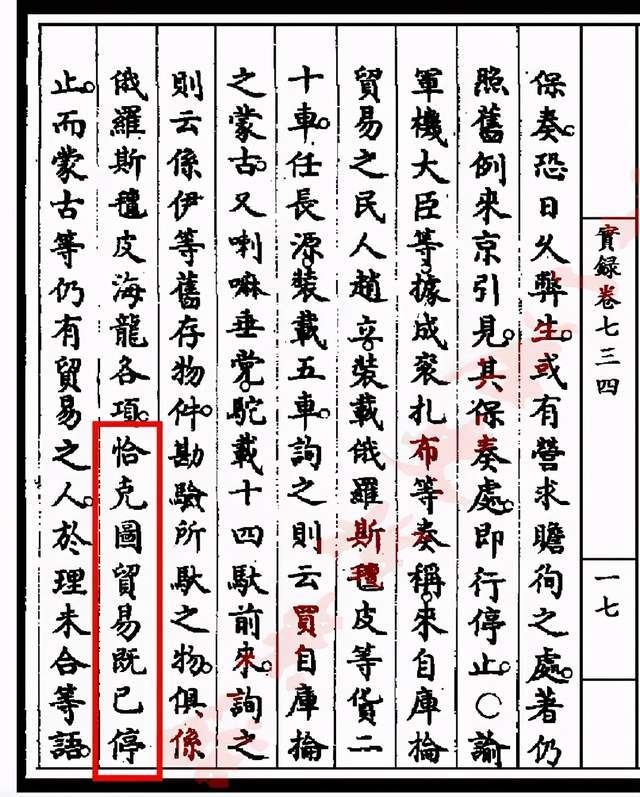 實錄卷七三四
一七
保奏。恐日久弊生。或有營求瞻徇之處。著仍
照舊例來京引見。其保奏處。即行停止。○諭
軍機大臣等。據成袞扎布等奏稱。來自庫掄
貿易之民人趙。裝載俄羅斯氊皮等貨二
十車。任長源。裝載五車。詢之則云買自庫掄
之蒙古。又喇嘛垂党。駝載十四馱前來。詢之
則云係伊等舊存物件。勘驗所馱之物。俱係
俄羅斯氊皮海龍各項。恰克圖貿易既已停
止。而蒙古等仍有貿易之人。於理未合等語。